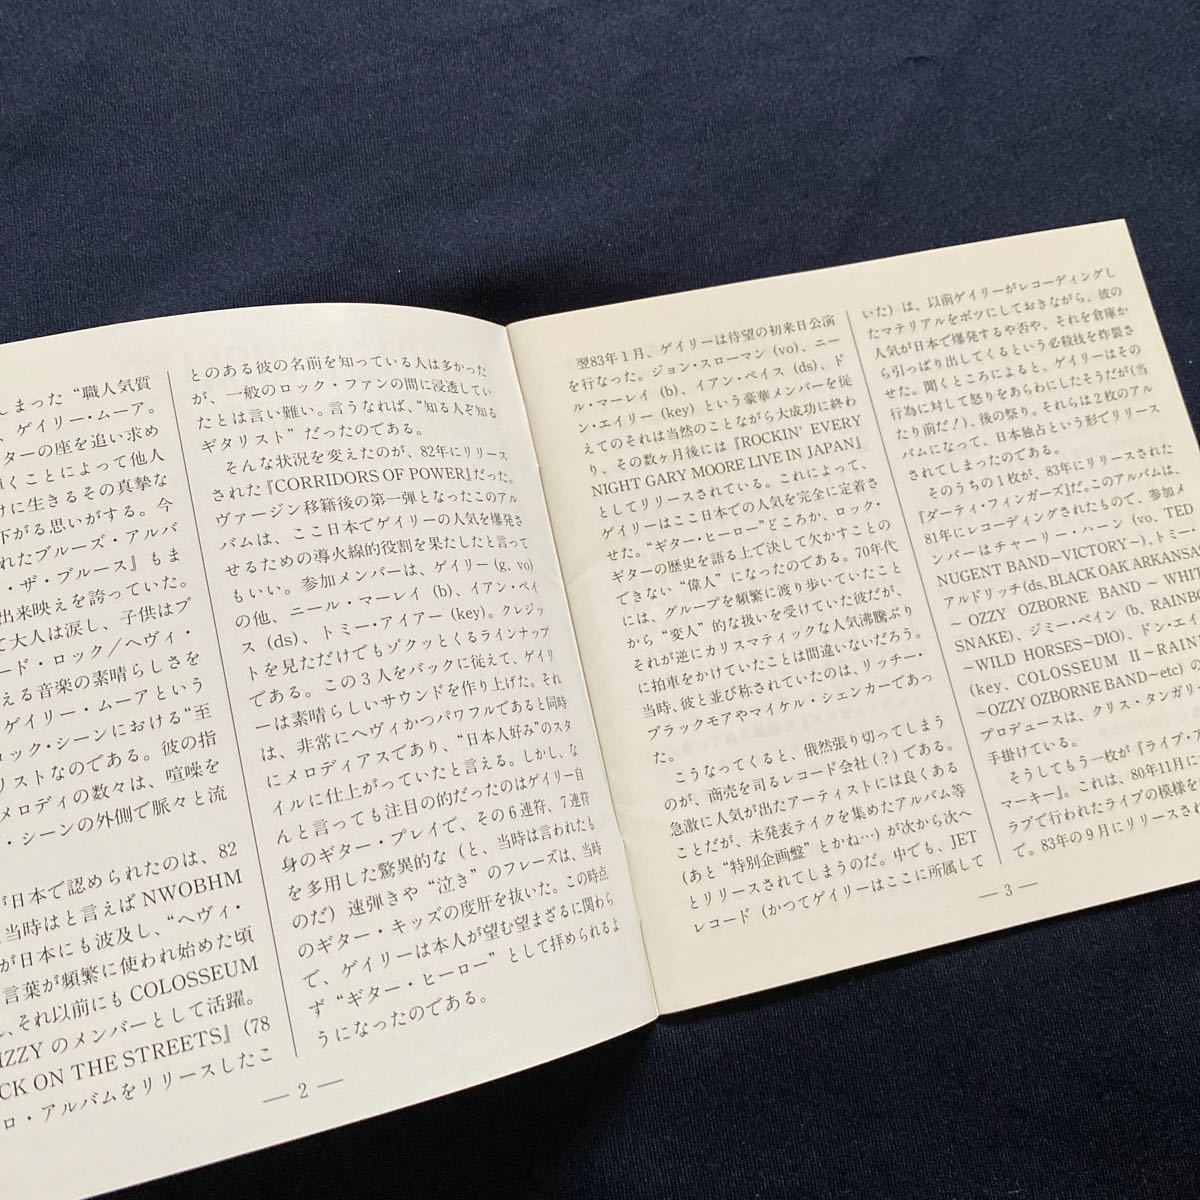 しまった“職人気質
、ゲイリー・ムーア。
ターの座を追い求め
くことによって他人
けに生きるその真摯な
下がる思いがする。今
れたブルーズ・アルバ
・ザ・ブルース』もま
出来映えを誇っていた。
て大人は涙し、子供はブ
ード・ロック／ヘヴィ・
える音楽の素晴らしさを
ゲイリー・ムーアという
ロック・シーンにおける“至
リストなのである。彼の指
メロディの数々は、喧噪を
・シーンの外側で脈々と流
が日本で認められたのは、82
当時はと言えばNWOBHM
が日本にも波及し、“ヘヴィ・
言葉が頻繁に使われ始めた頃
、それ以前にもCOLOSSEUM
IZZYのメンバーとして活躍。
CK ON THE STREETS』(78
ロ・アルバムをリリースしたこ
とのある彼の名前を知っている人は多かった
が、一般のロック・ファンの間に浸透してい
たとは言い難い。言うなれば、“知る人ぞ知る
ギタリスト”だったのである。
そんな状況を変えたのが、82年にリリース
された『CORRIDORS OF POWER』だった。
ヴァージン移籍後の第一弾となったこのアル
バムは、ここ日本でゲイリーの人気を爆発さ
せるための導火線的役割を果たしたと言って
もいい。参加メンバーは、ゲイリー(g, vo)
の他、ニール・マーレイ(b)、イアン・ペイ
ス(ds)、トミー・アイアー(key)。クレジッ
トを見ただけでもゾクッとくるラインナップ
である。この3人をバックに従えて、ゲイリ
ーは素晴らしいサウンドを作り上げた。それ
は、非常にヘヴィかつパワフルであると同時
にメロディアスであり、“日本人好み”のスタ
イルに仕上がっていたと言える。しかし、な
んと言っても注目の的だったのはゲイリー自
身のギター・プレイで、その6連符、7連符
を多用した驚異的な(と、当時は言われたも
のだ)速弾きや“泣き”のフレーズは、当時
のギター・キッズの度肝を抜いた。この時点
で、ゲイリーは本人が望む望まざるに関わら
ず“ギター・ヒーロー”として拝められるよ
うになったのである。
— 2 —
翌83年1月、ゲイリーは待望の初来日公演
を行なった。ジョン・スローマン(vo)、ニー
ル・マーレイ(b)、イアン・ペイス(ds)、ド
ン・エイリー(key)という豪華メンバーを従
えてのそれは当然のことながら大成功に終わ
り、その数ヶ月後には『ROCKIN' EVERY
NIGHT GARY MOORE LIVE IN JAPAN』
としてリリースされている。これによって、
ゲイリーはここ日本での人気を完全に定着さ
せた。“ギター・ヒーロー”どころか、ロック・
ギターの歴史を語る上で決して欠かすことの
できない“偉人”になったのである。70年代
には、グループを頻繁に渡り歩いていたこと
から“変人”的な扱いを受けていた彼だが、
それが逆にカリスマティックな人気沸騰ぶり
に拍車をかけていたことは間違いないだろう。
当時、彼と並び称されていたのは、リッチー・
ブラックモアやマイケル・シェンカーであっ
た。
こうなってくると、俄然張り切ってしまう
のが、商売を司るレコード会社(?)である。
急激に人気が出たアーティストには良くある
ことだが、未発表テイクを集めたアルバム等
(あと“特別企画盤”とかね…)が次から次へ
とリリースされてしまうのだ。中でも、JET
レコード(かつてゲイリーはここに所属して
いた)は、以前ゲイリーがレコーディングし
たマテリアルをボツにしておきながら、彼の
人気が日本で爆発するや否や、それを倉庫か
ら引っぱり出してくるという必殺技を炸裂さ
せた。聞くところによると、ゲイリーはその
行為に対して怒りをあらわにしたそうだが(当
たり前だ!)、後の祭り。それらは2枚のアル
バムになって、日本独占という形でリリース
されてしまったのである。
そのうちの1枚が、83年にリリースされた
『ダーティ・フィンガーズ』だ。このアルバムは、
81年にレコーディングされたもので、参加メ
ンバーはチャーリー・ハーン(vo、TED
NUGENT BAND～VICTORY～)、トミー・
アルドリッチ(ds, BLACK OAK ARKANSA
～ OZZY OZBORNE BAND ～ WHIT
SNAKE)、ジミー・ペイン(b、RAINBO
～WILD HORSES～DIO)、ドン・エイ
(key、COLOSSEUM II～RAIN
～OZZY OZBORNE BAND～etc)の
プロデュースは、クリス・タンガリー
手掛けている。
そうしてもう一枚が『ライブ・ア
マーキー』。これは、80年11月に
ラブで行われたライブの模様を
で。83年の9月にリリースされ
— 3 —